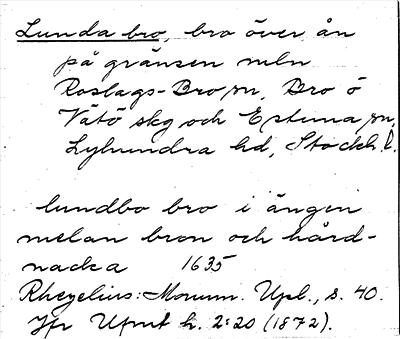 Lunda bro, bro över ån
på gränsen mln
Roslags-Bro sn, Bro o
Vätö skg och Estuna sn,
Lyhundra hd, Stockh. l.
lundbo bro i ängin
melan bron och hård-
nacka 1635
Rhezelius: Monum. Upl., s. 40.
Jfr Ufmt h. 2:20 (1872).